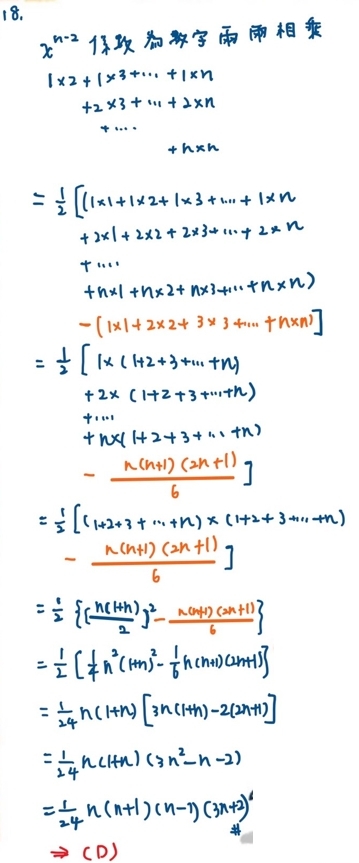 18.
x^{n-2} 係數為數字兩兩相乘
1×2+1×3+⋯+1×n
+2×3+⋯+2×n
+⋯.
+n×n
= 1/2 [(1×1+1×2+1×3+⋯+1×n
+2×1+2×2+2×3+⋯+2×n
+⋯.
+n×1+n×2+n×3+⋯+n×n)
-(1×1+2×2+3×3+⋯+n×n)]
= 1/2 [1×(1+2+3+⋯+n)
+2×(1+2+3+⋯+n)
+⋯.
+n×(1+2+3+⋯+n)
- n(n+1)(2n+1)/6 ]
= 1/2 [(1+2+3+⋯+n)×(1+2+3+⋯+n)
- n(n+1)(2n+1)/6 ]
= 1/2 {[n(1+n)/2]^2 - n(n+1)(2n+1)/6}
= 1/2 [1/4 n^2(1+n)^2 - 1/6 n(n+1)(2n+1)]
= 1/24 n(1+n) [3n(1+n)-2(2n+1)]
= 1/24 n(1+n)(3n^2-n-2)
= 1/24 n(n+1)(n-1)(3n+2)#
⇒ (D)